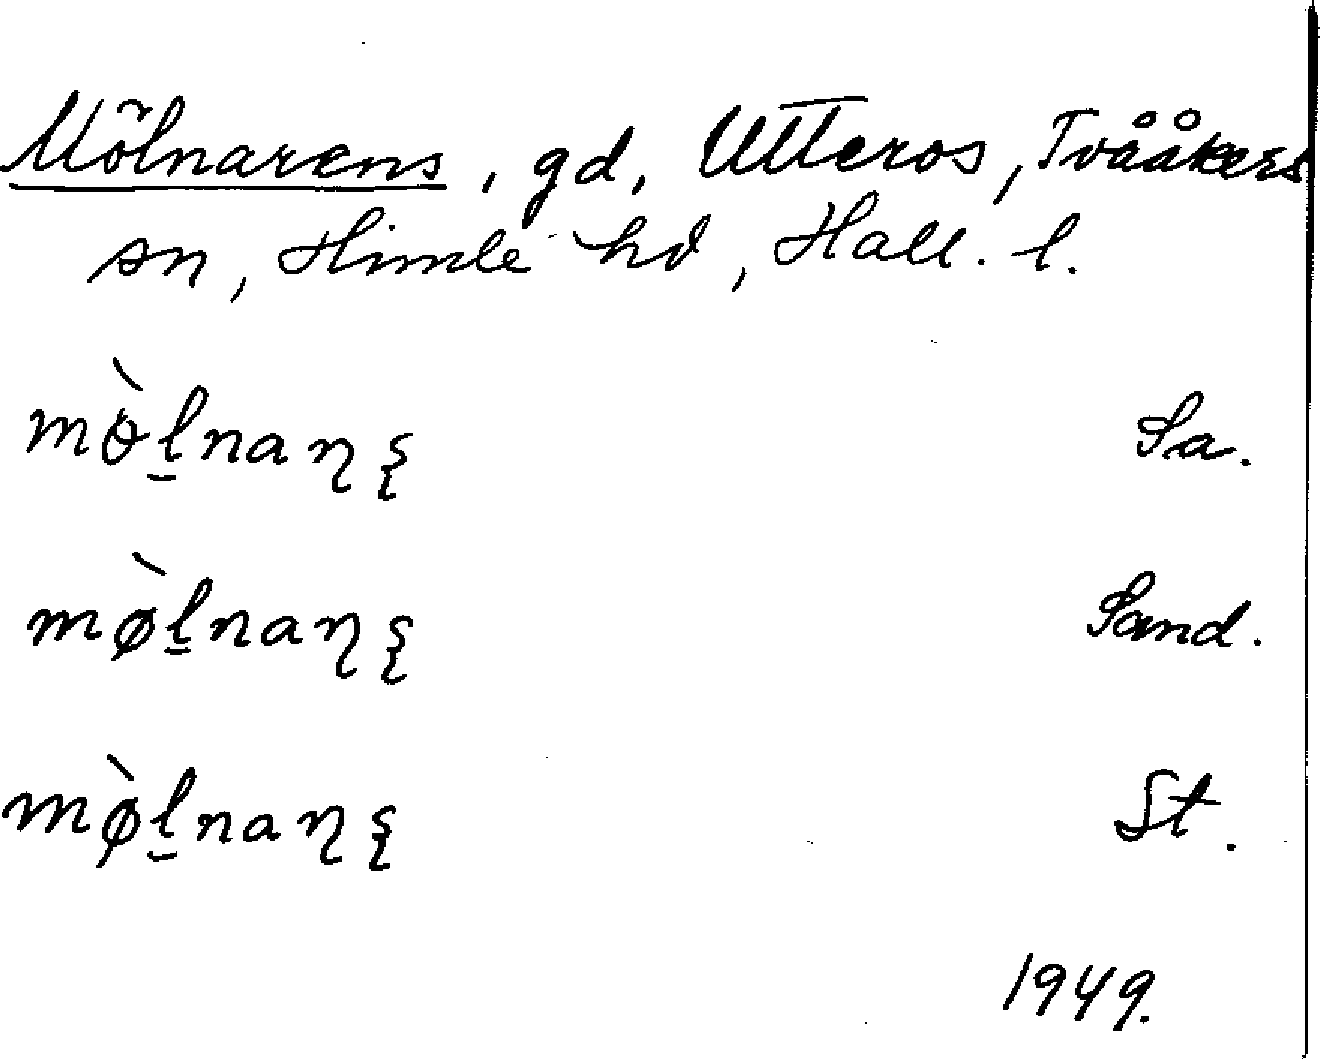 Mölnarens, gd, Utteros, Tvååkers
sn, Himle hd, Hall. l.
mɵ̀l̠naɳʂ Sa.
mø̀l̠naɳʂ Sand.
mø̀l̠naɳʂ St.
1949.